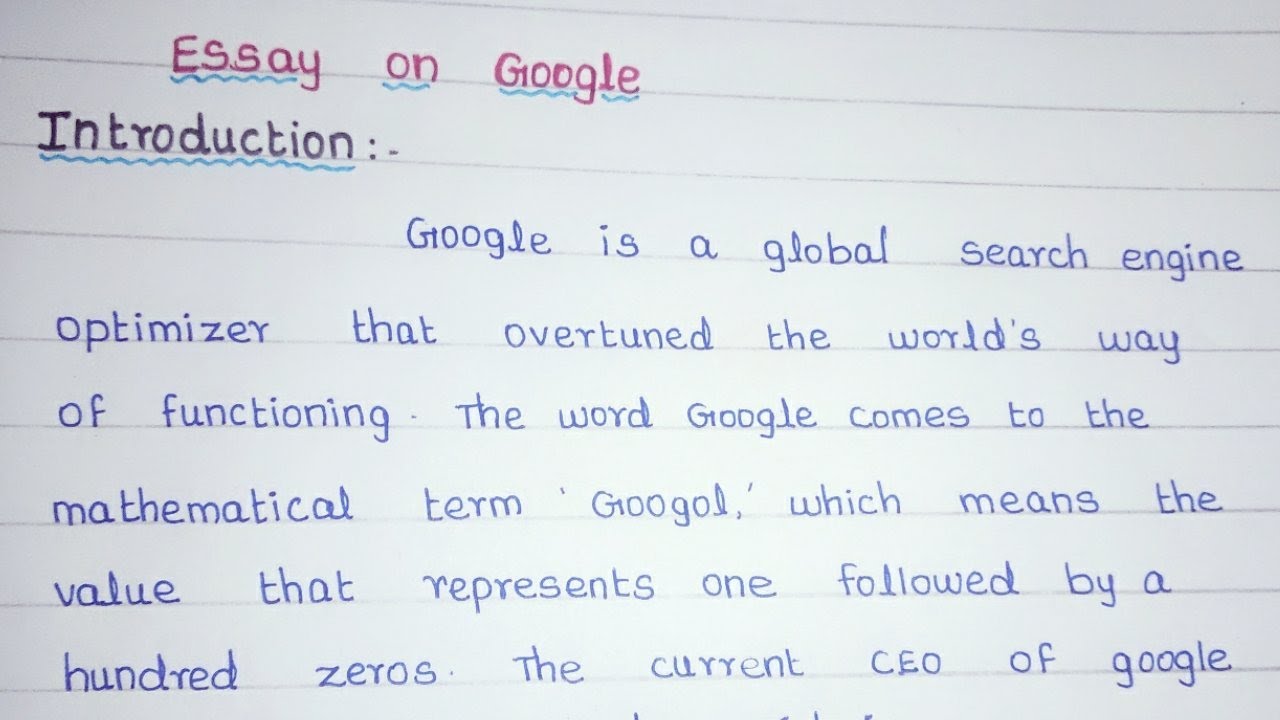 Essay on Google
Introduction:-
Google is a global search engine
optimizer that overtuned the world's way
of functioning. The word Google comes to the
mathematical term 'Googol,' which means the
value that represents one followed by a
hundred zeros. The current CEO of google